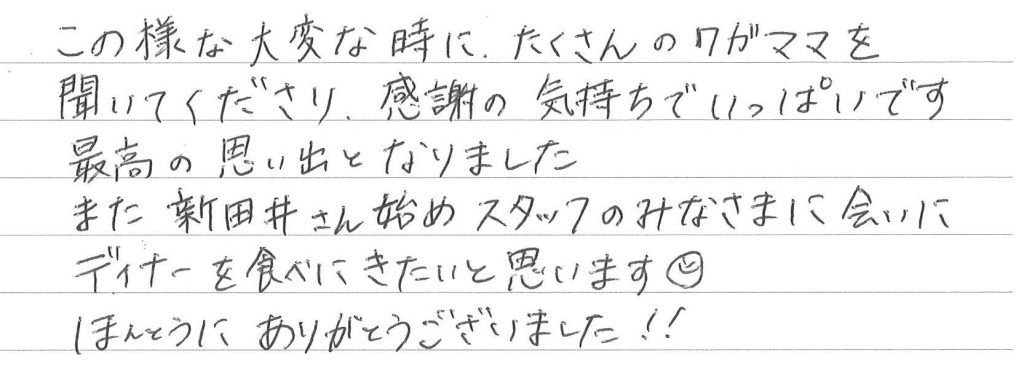 この様な大変な時に、たくさんのワガママを
聞いてくださり、感謝の気持ちでいっぱいです
最高の思い出となりました
また新田井さん始めスタッフのみなさまに会いに
ディナーを食べにきたいと思います☺
ほんとうにありがとうございました!!